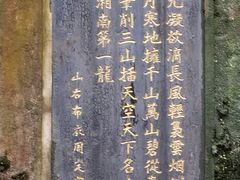 光凝欲滴長風輕裊雲烟
月寒地擁千山萬山碧從
華削三山插天空天下名
湘南第一龍
山右布衣周